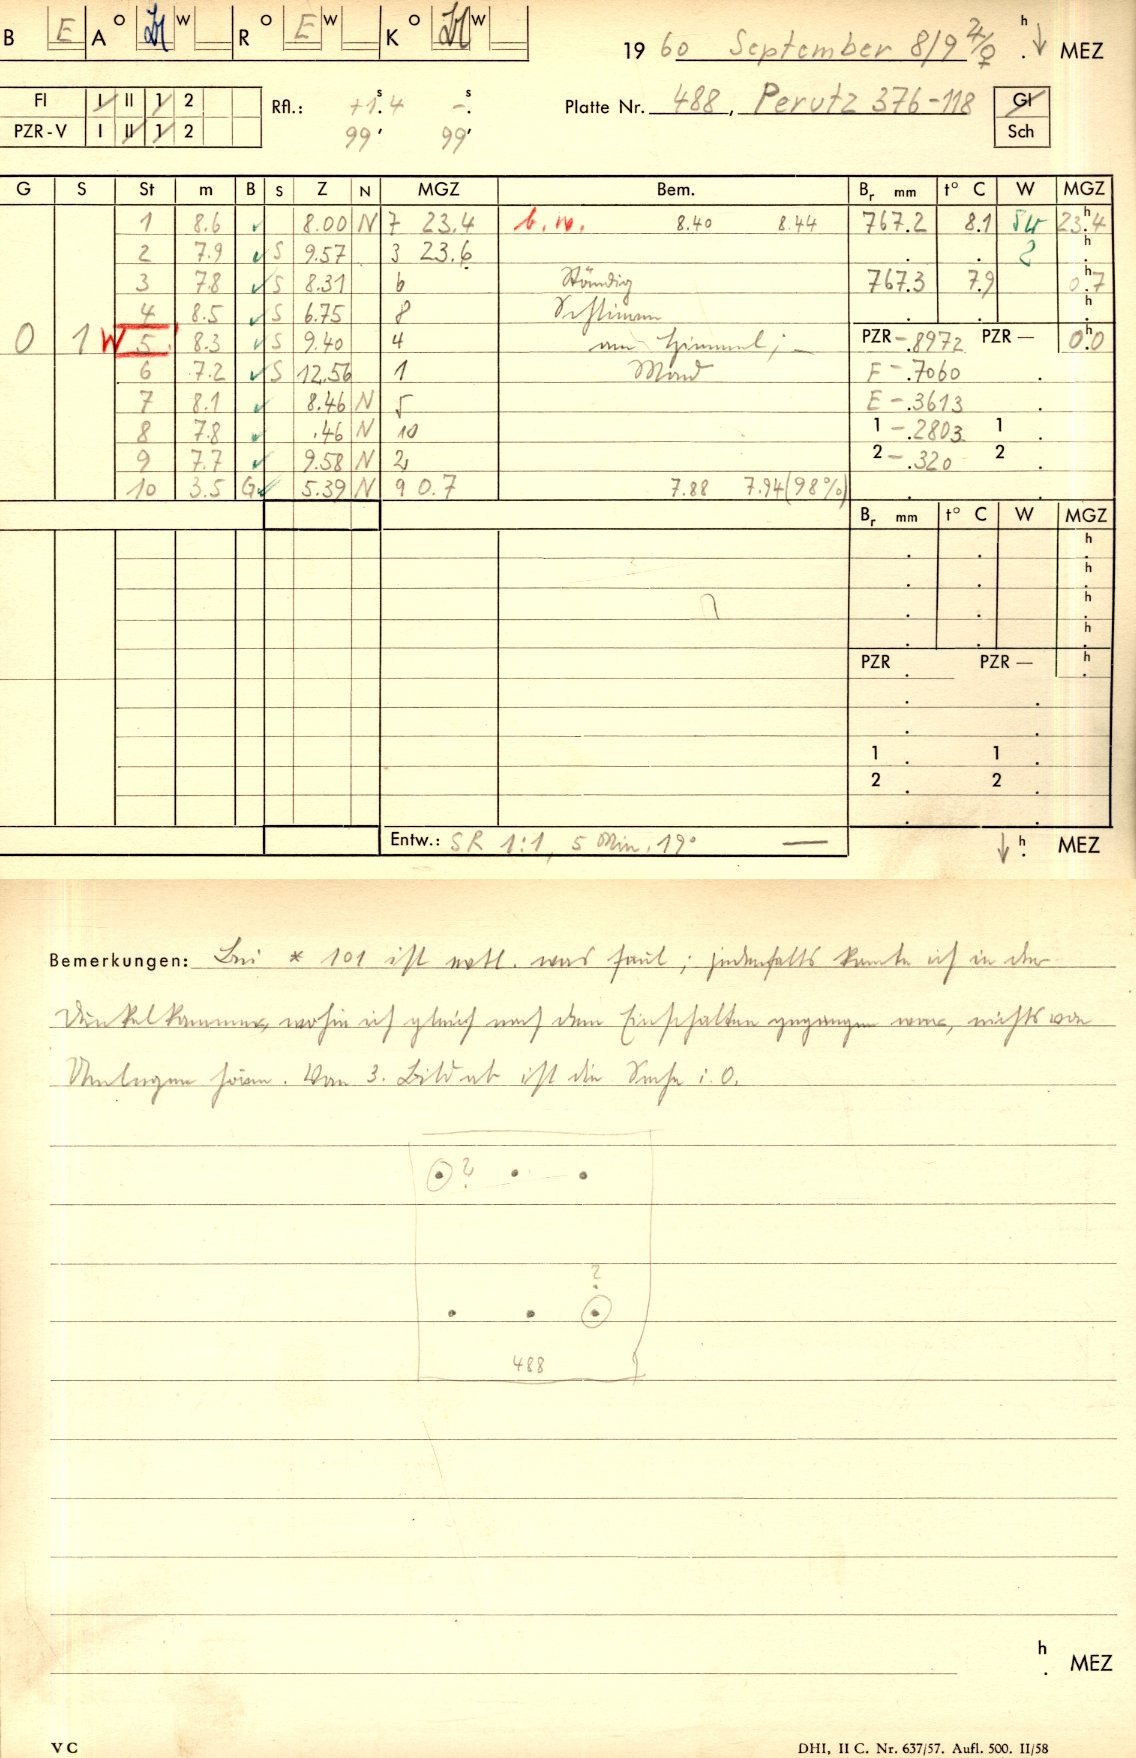 B E A O W R O E W K O W
19 60 September 8/9 ♃/♀ h ↓ MEZ
Fl I II 1 2 Rfl.: +1.4 s -. s Platte Nr. 488, Perutz 376-118 Gl
PZR-V I II 1 2 99' 99' Sch
G S St m B S Z N MGZ Bem. Br mm t° C W MGZ
1 8.6 ✓ 8.00 N 7 23.4 b.w. 8.40 8.44 767.2 8.1 SW 23.4 h
2 7.9 ✓ S 9.57 3 23.6 . . 2 h
3 7.8 ✓ S 8.31 6 Ständig 767.3 7.9 0.7 h
4 8.5 ✓ S 6.75 8 Schlieren . . h
0 1 W 5 8.3 ✓ S 9.40 4 am Himmel; - PZR -.8972 PZR — 0.0 h
6 7.2 ✓ S 12.56 1 Mond F -.7060 .
7 8.1 ✓ 8.46 N 5 E -.3613 .
8 7.8 ✓ .46 N 10 1 -.2803 1 .
9 7.7 ✓ 9.58 N 2 2 -.320 2 .
10 3.5 G ✓ 5.39 N 9 0.7 7.88 7.94 (98%)
Br mm t° C W MGZ
h
h
h
h
PZR . PZR — h
1 . 1 .
2 . 2 .
Entw.: SR 1:1, 5 Min, 19° — ↓ h MEZ
Bemerkungen: Bei * 101 ist evtl. was faul; jedenfalls konnte ich in der
Dunkelkammer, wohin ich gleich nach dem Einschalten gegangen war, nichts von
Umlegen hören. Vom 3. Bild ab ist die Sache i.O.
?
?
488
h
. MEZ
VC DHI, II C. Nr. 637/57. Aufl. 500. II/58